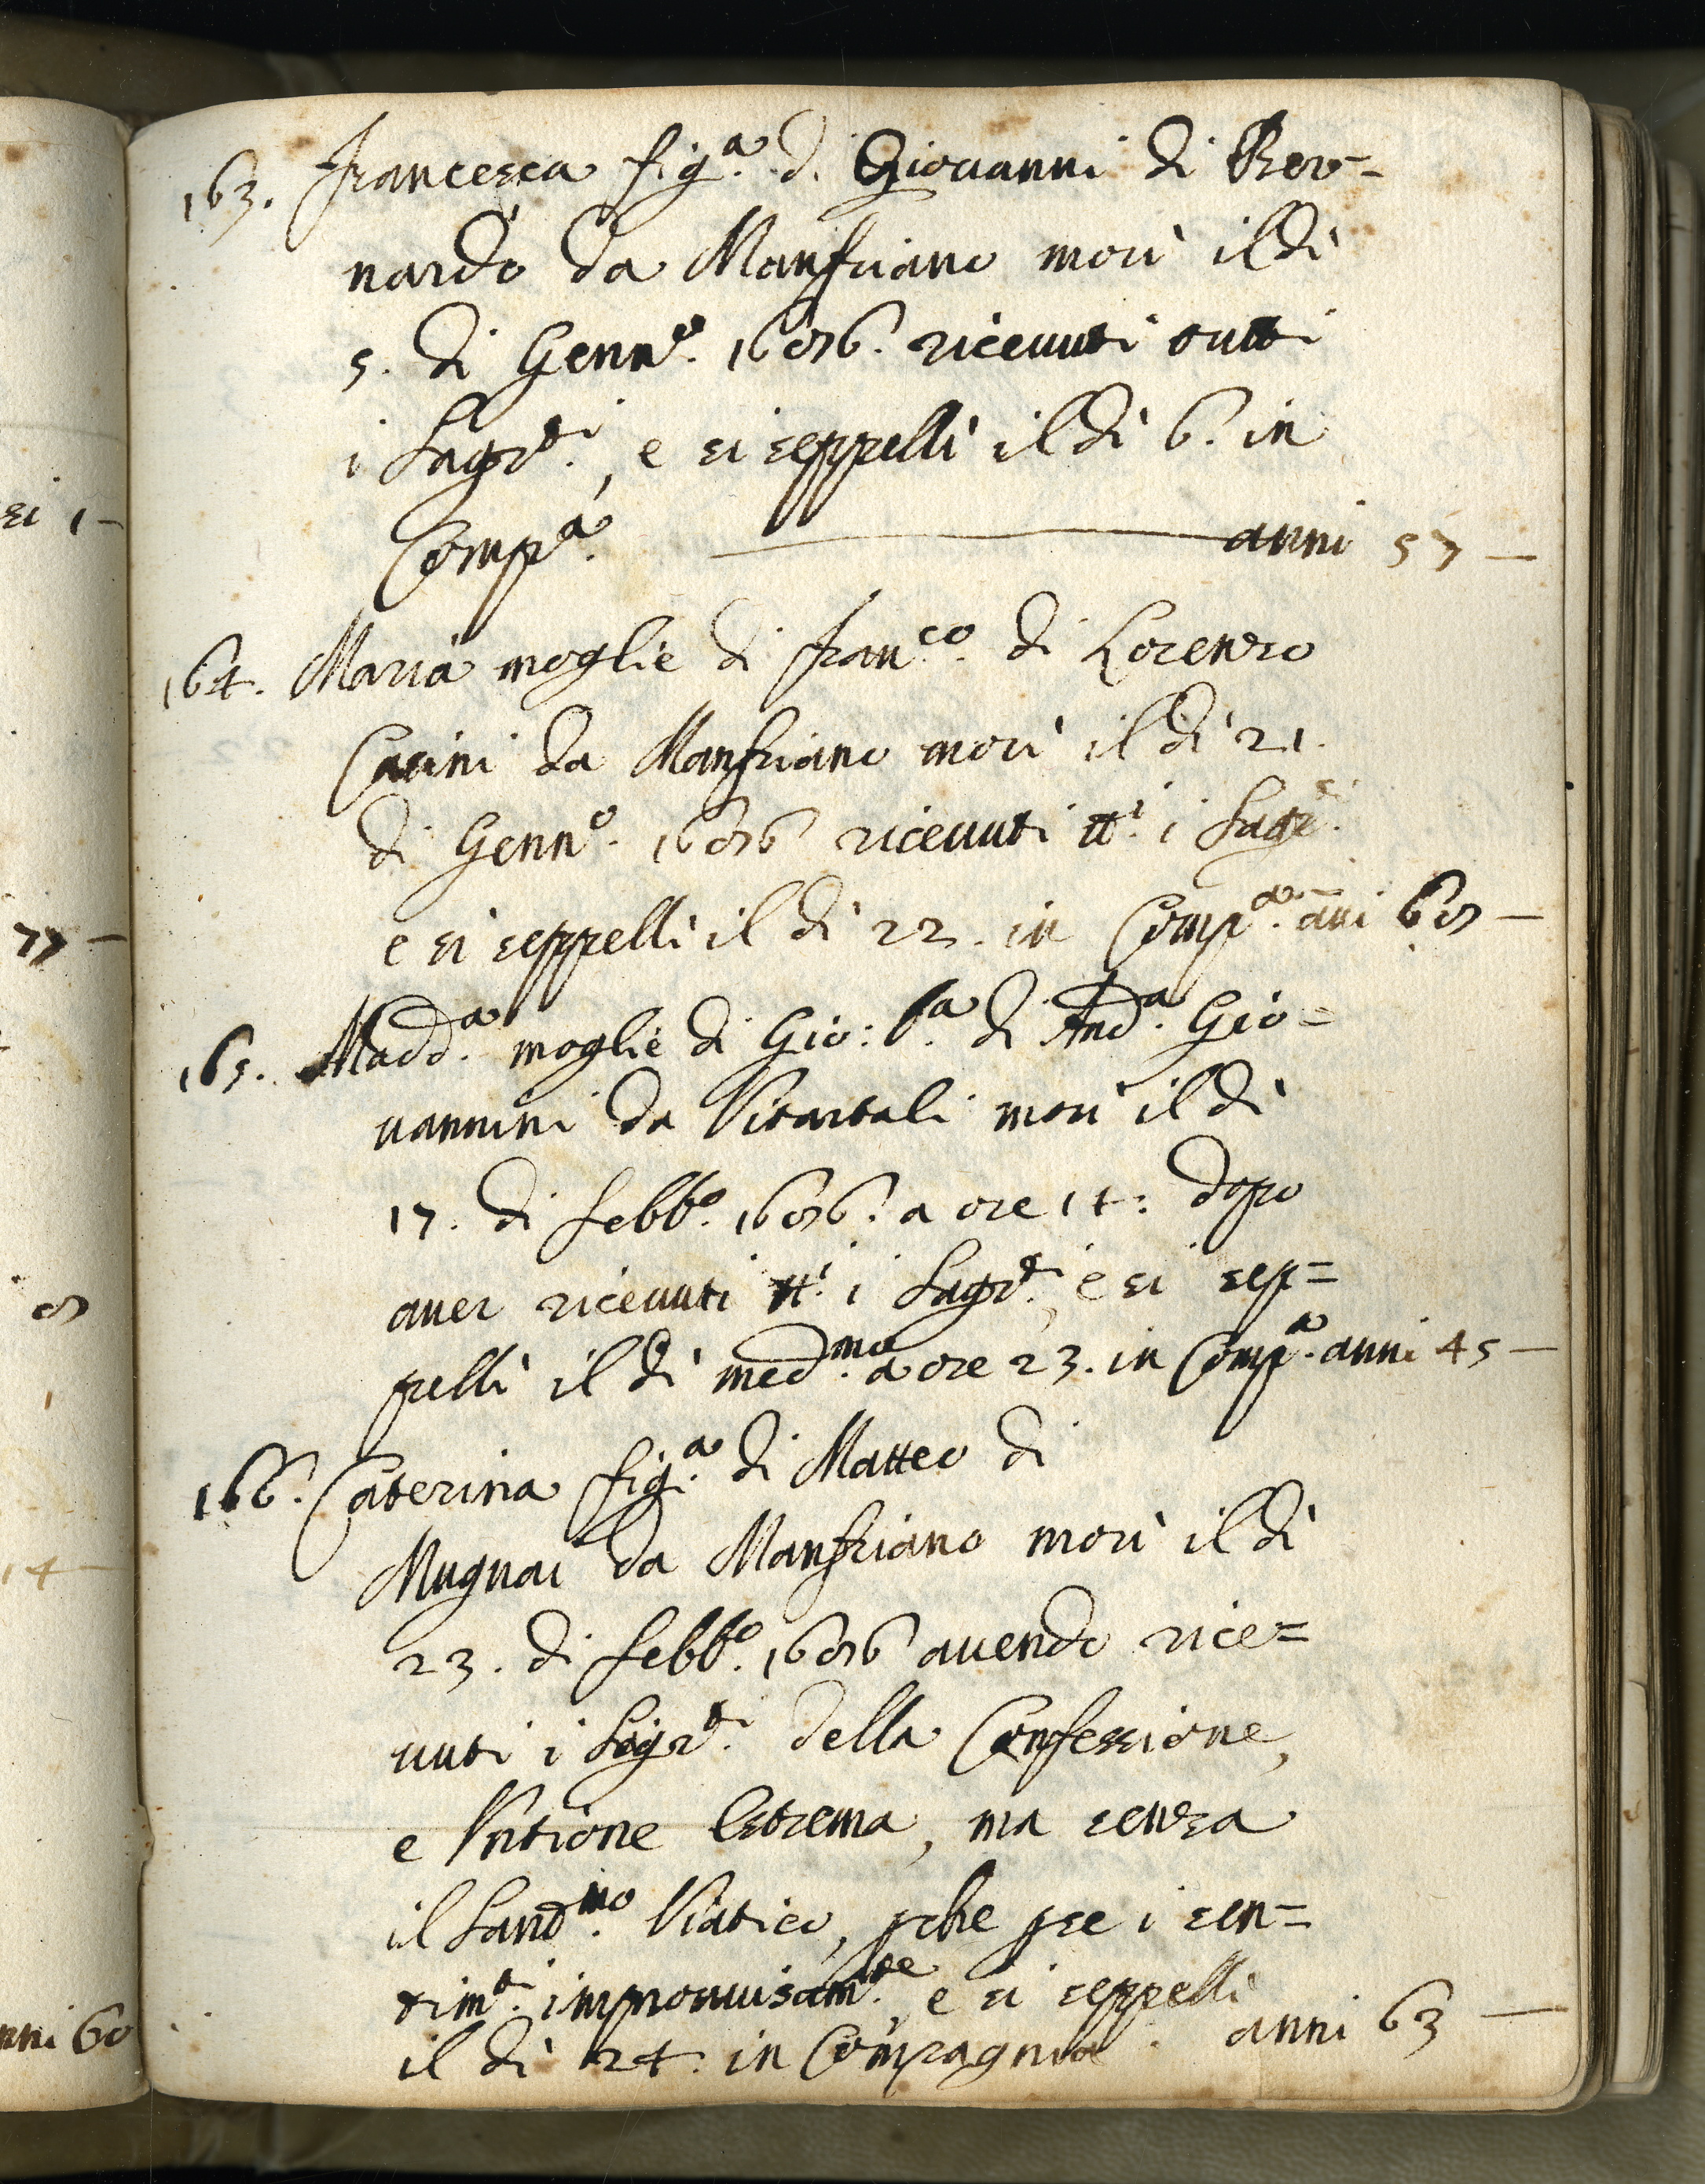 si 1 —
77 —
8
14 —
nni 60
163. Francesca fig.a d. Giouanni di Ber=
nardo da Manfriano morì il dì
5. di Genn.o 1686. riceuuti tutti
i Sagr.ti, e si seppellì il dì 6. in
Comp.a — anni 57 —
164. Maria moglie di Fran.co di Lorenzo
Casini da Manfriano morì il dì 21.
di Genn.o 1686 riceuuti tt.i i Sagr.ti
e si seppellì il dì 22. in Comp.a ãni 68 —
165. Madd.a moglie di Gio: B.a di And.a Gio=
uannini da Vitartali morì il dì
17. di Febb.o 1686. a ore 14: dopo
auer riceuuti tt.i i Sagr.ti, e si sep=
pellì il dì med.mo a ore 23. in Comp.a anni 45 —
166. Caterina fig.a di Matteo di
Mugnai da Manfriano morì il dì
23. di Febb.o 1686 auendo rice=
uuti i Sagr.ti della Confessione,
e Vntione Estrema, ma senza
il Sant.mo Viatico, pche pse i sen=
tim.ti improuuisam.te, e si seppellì
il dì 24. in Compagnia. anni 63 —